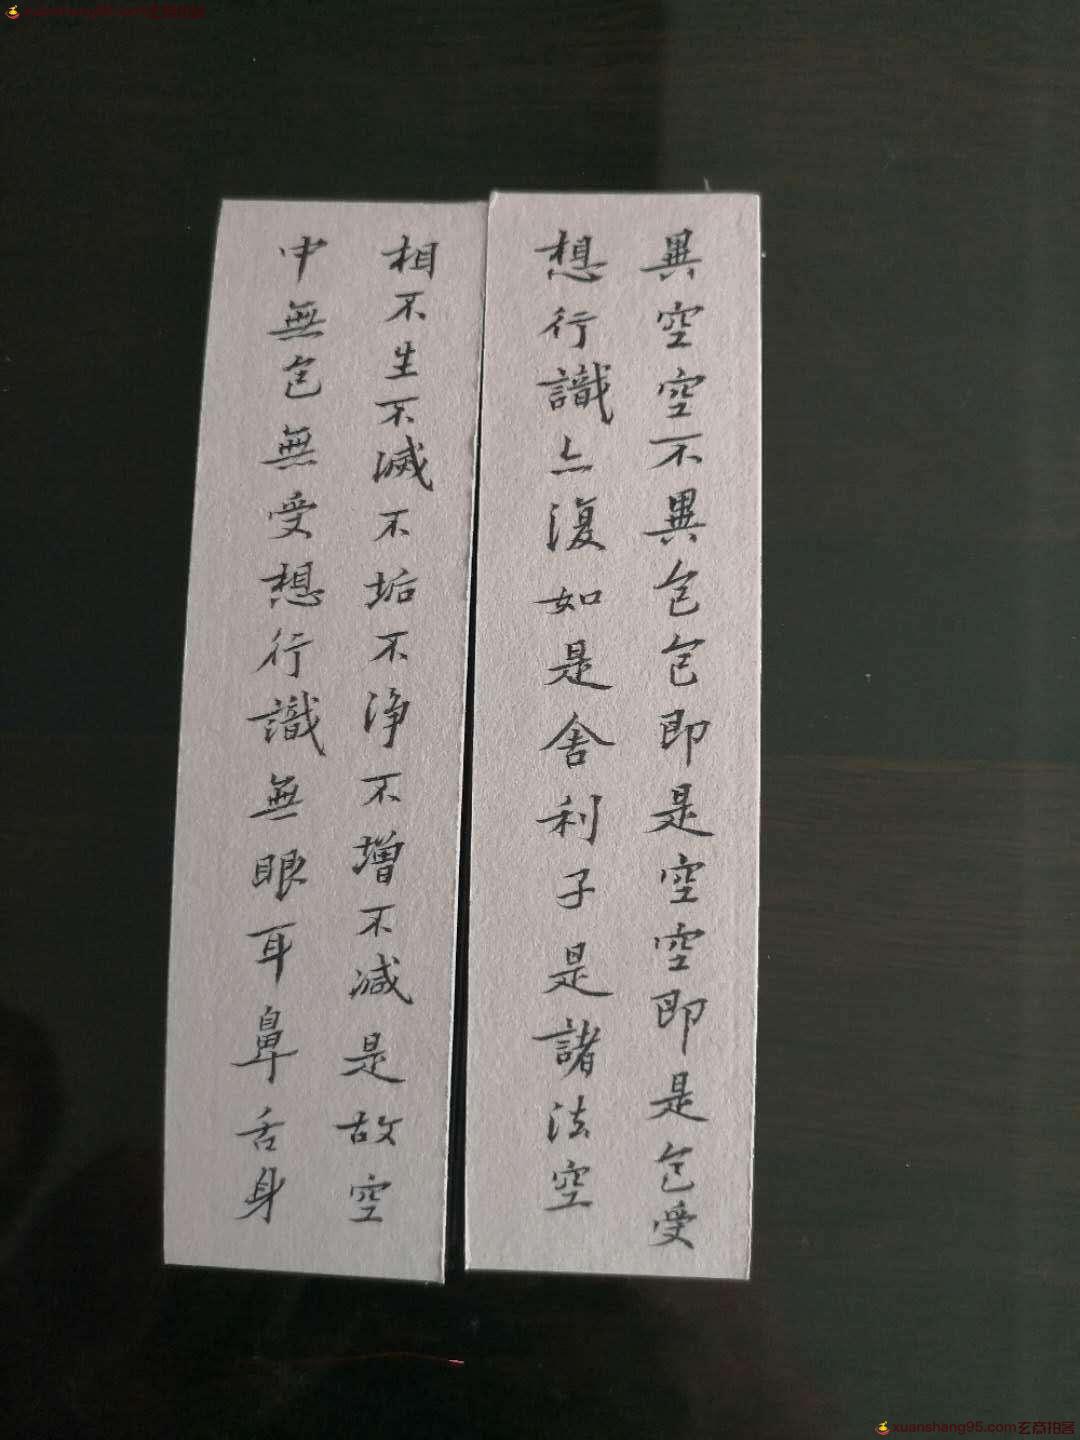 異空空不異色色即是空空即是色受
想行識亦復如是舍利子是諸法空
相不生不滅不垢不淨不增不減是故空
中無色無受想行識無眼耳鼻舌身
xuanshang95.com玄商拍客
xuanshang95.com玄商拍客